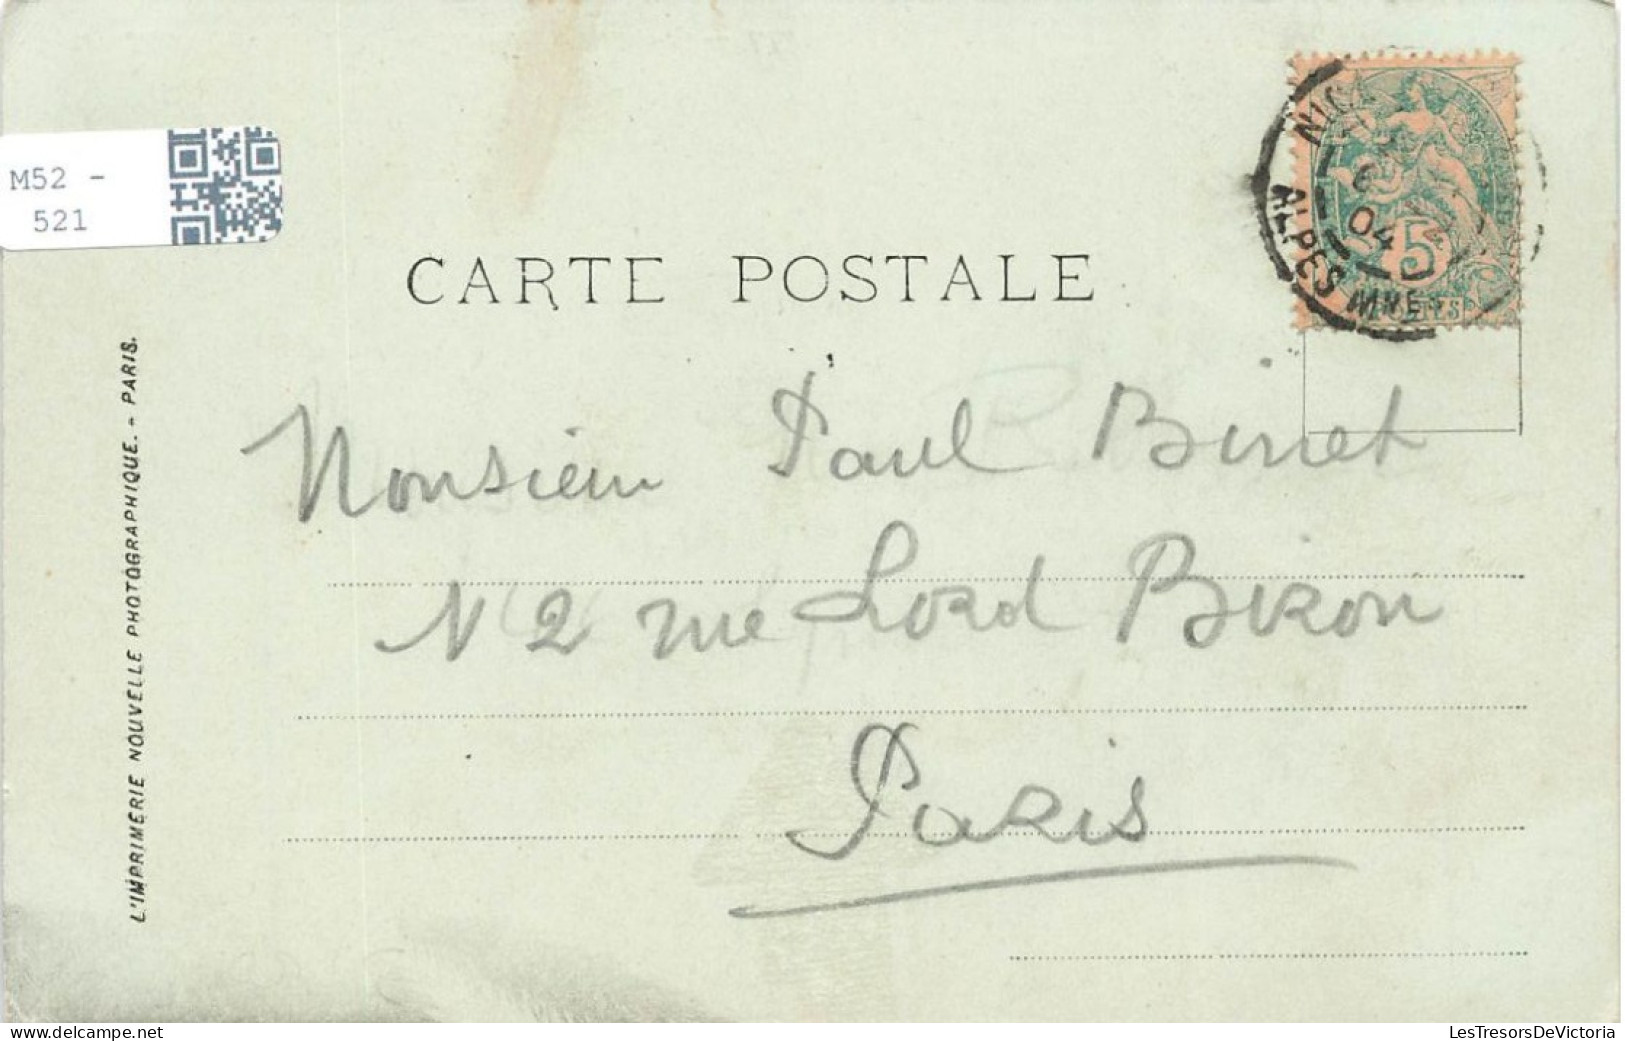 M52 -
521
CARTE POSTALE
NICE
04
ALPES MMES
5
POSTES
L'IMPRIMERIE NOUVELLE PHOTOGRAPHIQUE. - PARIS.
Monsieur Paul Binet
N 2 rue Lord Biron
Paris
LesTresorsDeVictoria